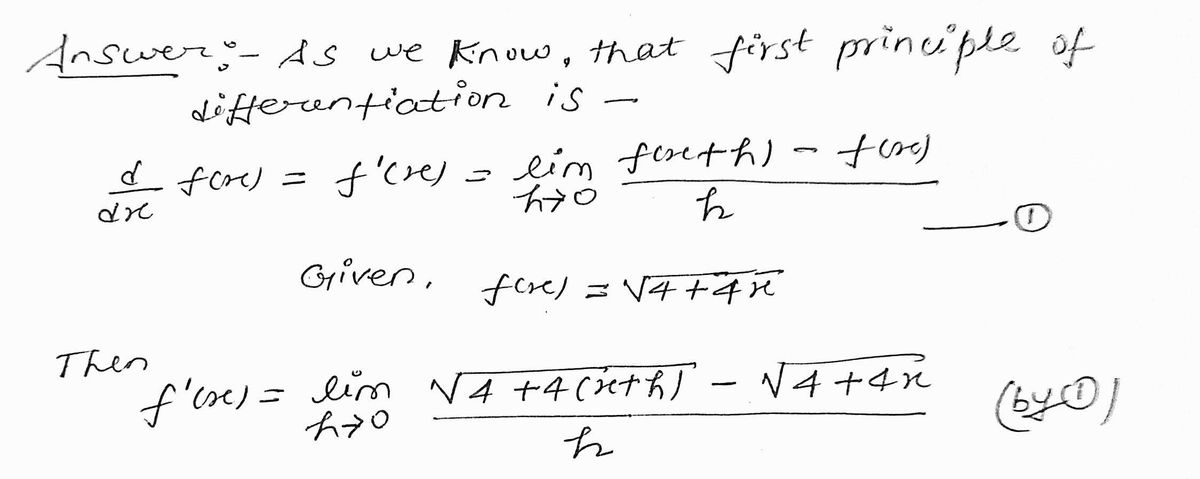 Answer:- As we know, that first principle of
differentiation is -
d/dx f(x) = f'(x) = lim h→0 f(x+h) - f(x) / h —— ①
Given, f(x) = √4+4x
Then
f'(x) = lim h→0 √4+4(x+h) - √4+4x / h (by ①)